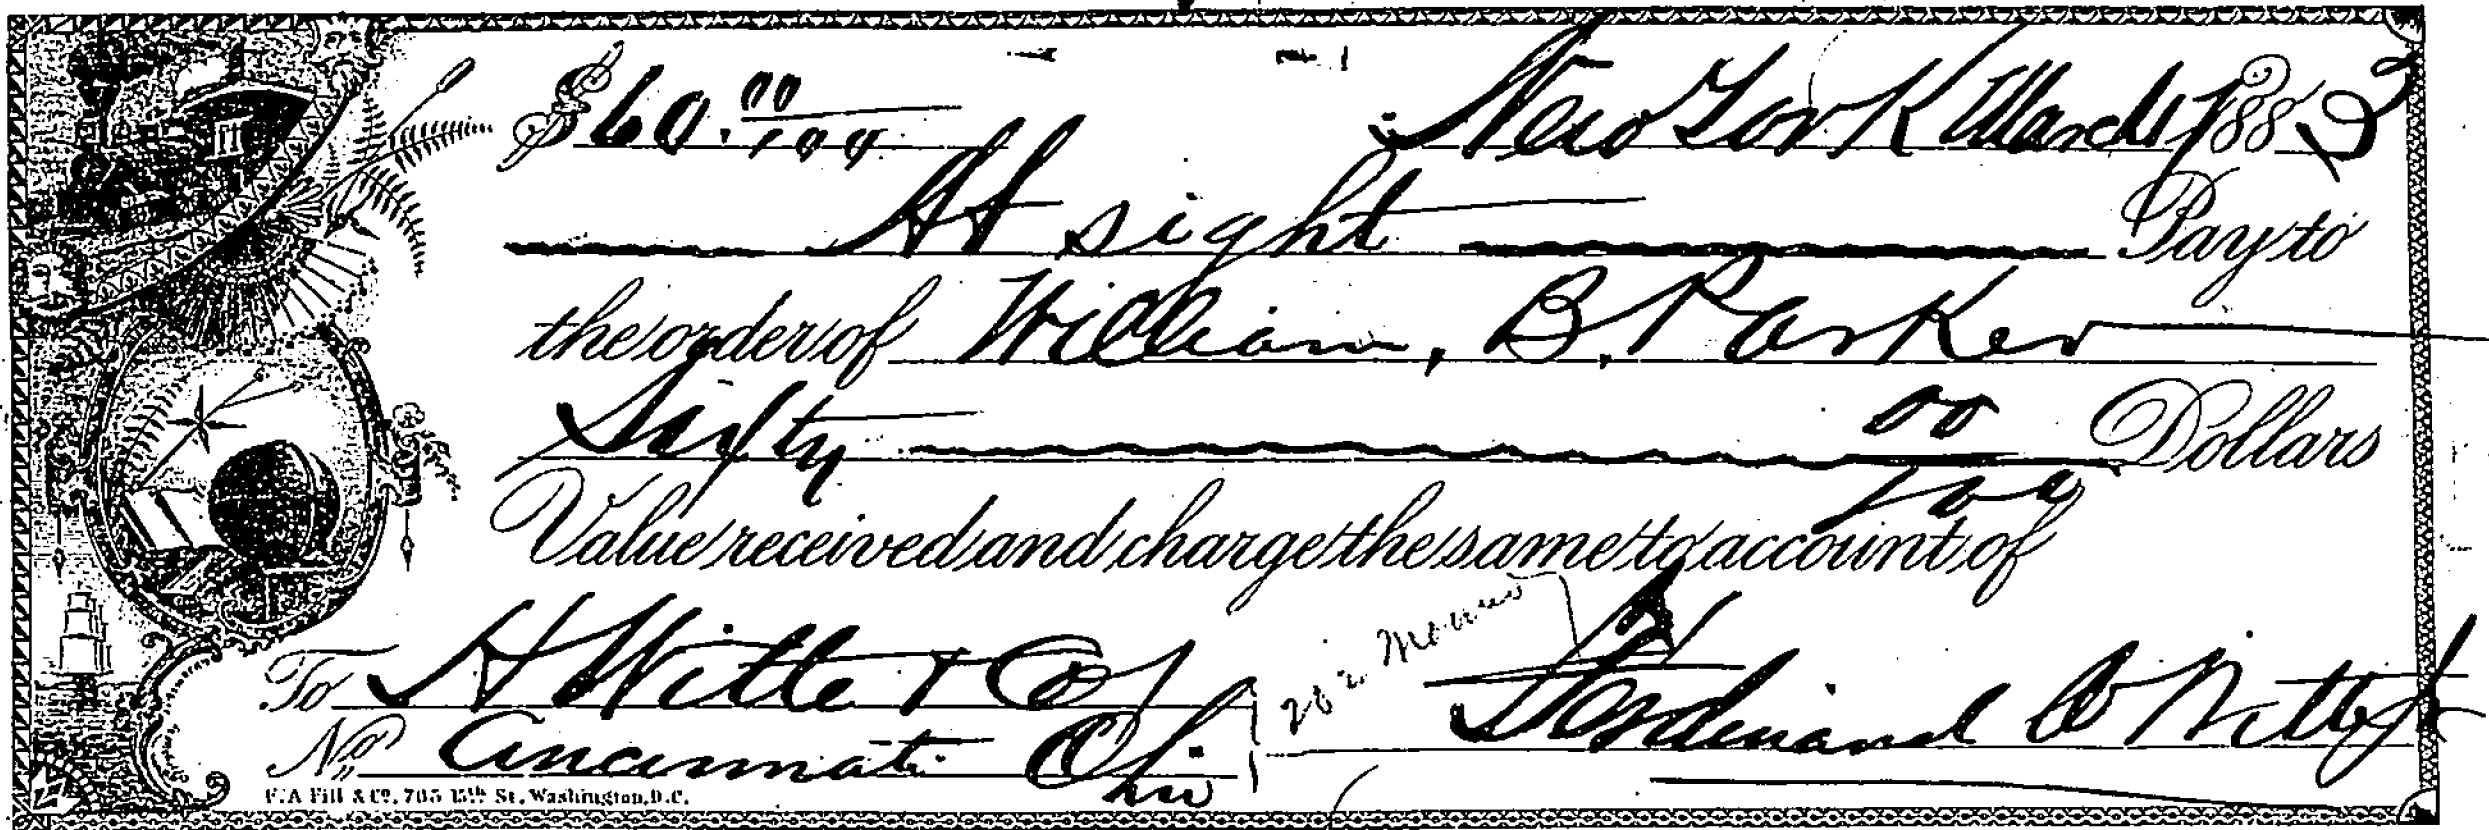 $60.00/100 New York March 1 1883
At sight Pay to
the order of William, B. Parker
Sixty 00/100 Dollars
Value received and charge the same to account of
To H Witte & Co
No Cincinnati Ohio
Ferdinand
F. A Fill & Co, 705 15th St, Washington, D.C.